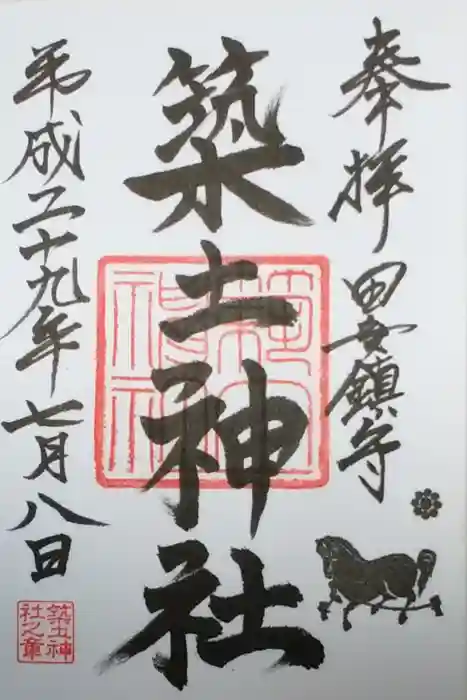 奉拝 田安鎮守
築土神社
平成二十九年七月八日
築土神
社之章